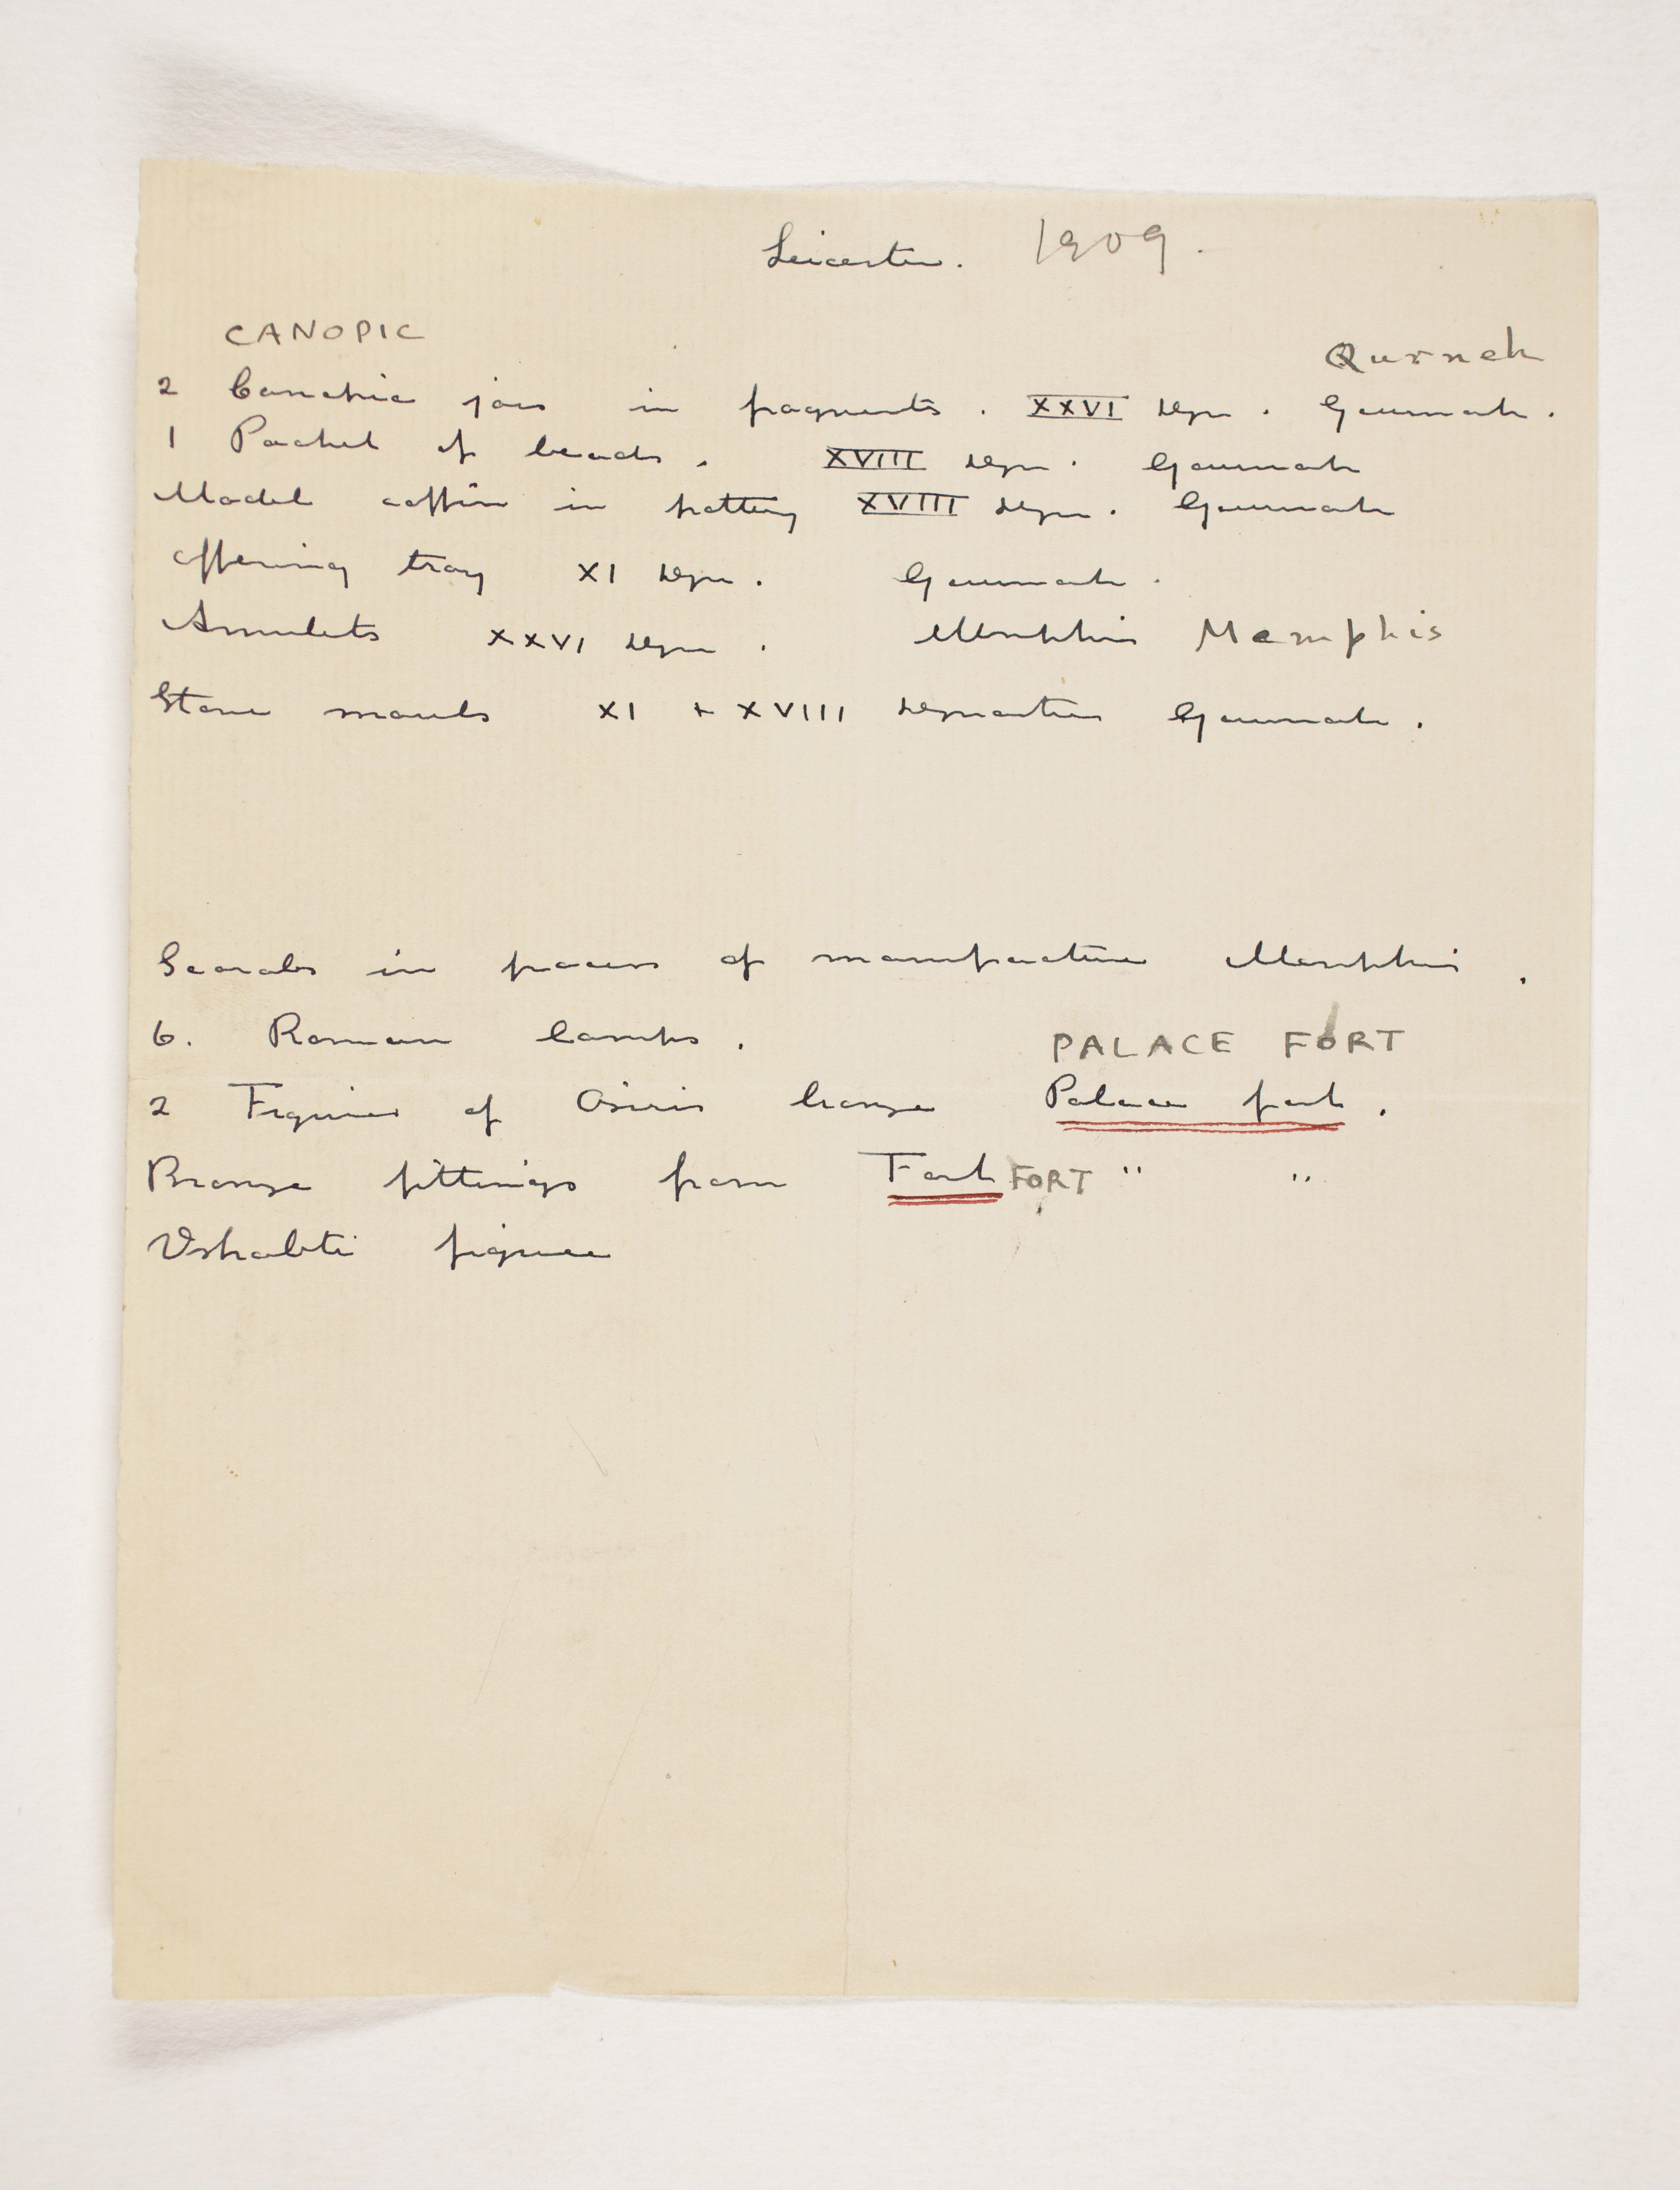 Leicester. 1909.
CANOPIC Qurneh
2 Canopic jars in fragments. XXVI Dyn. Gournah.
1 Packet of beads. XVIII Dyn. Gournah
Model coffin in pottery XVIII Dyn. Gournah
Offering tray XI Dyn. Gournah.
Amulets XXVI Dyn. Memphis Memphis
Stone mauls XI + XVIII Dynasties Gournah.
Scarabs in process of manufacture Memphis.
6. Roman lamps. PALACE FORT
2 Figures of Osiris bronze Palace fort.
Bronze fittings from Fort FORT " "
Ushabti figure